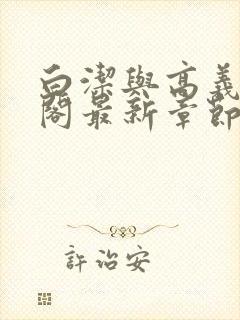 白潔與高義
閣最新章節
許治安